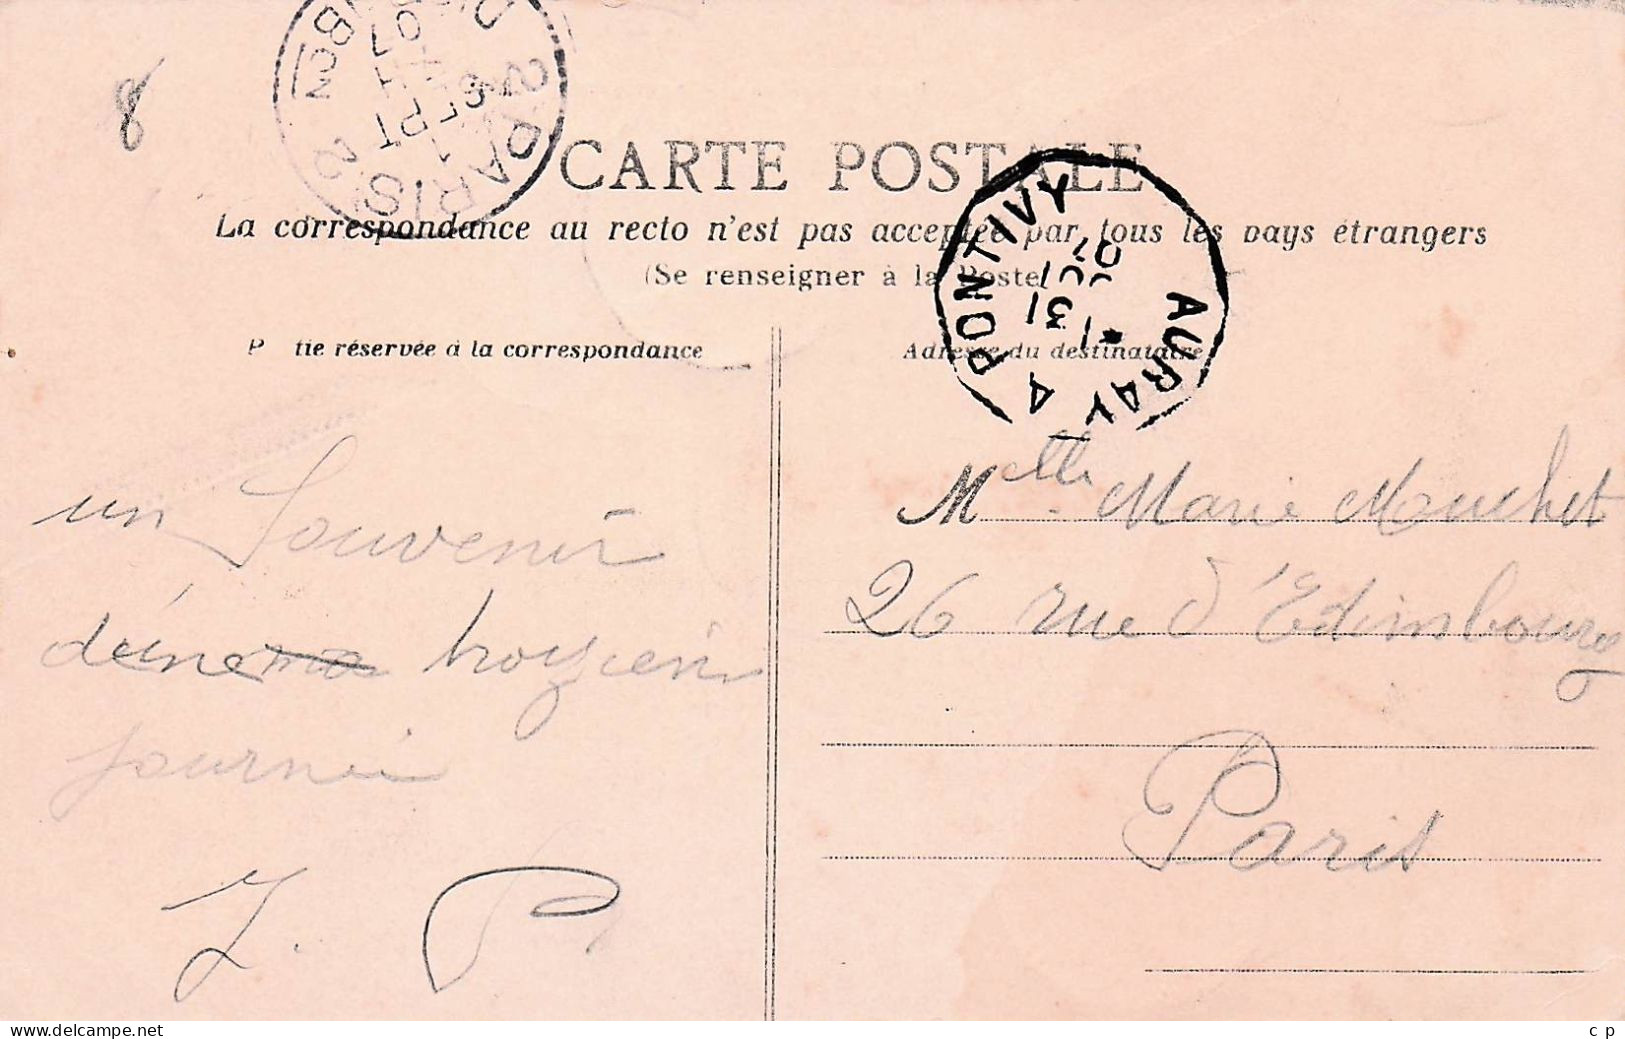 8
PARIS
SEPT
07
CARTE POSTALE
La correspondance au recto n'est pas acceptée par tous les pays étrangers
(Se renseigner à la Poste
AURAY A PONTIVY
31
07
P tie réservée à la correspondance
Adresse du destinataire
un Souvenir
journée
J. P.
Melle Marie Mouchet
26 rue d'Edimbourg
Paris
www.delcampe.net
c p